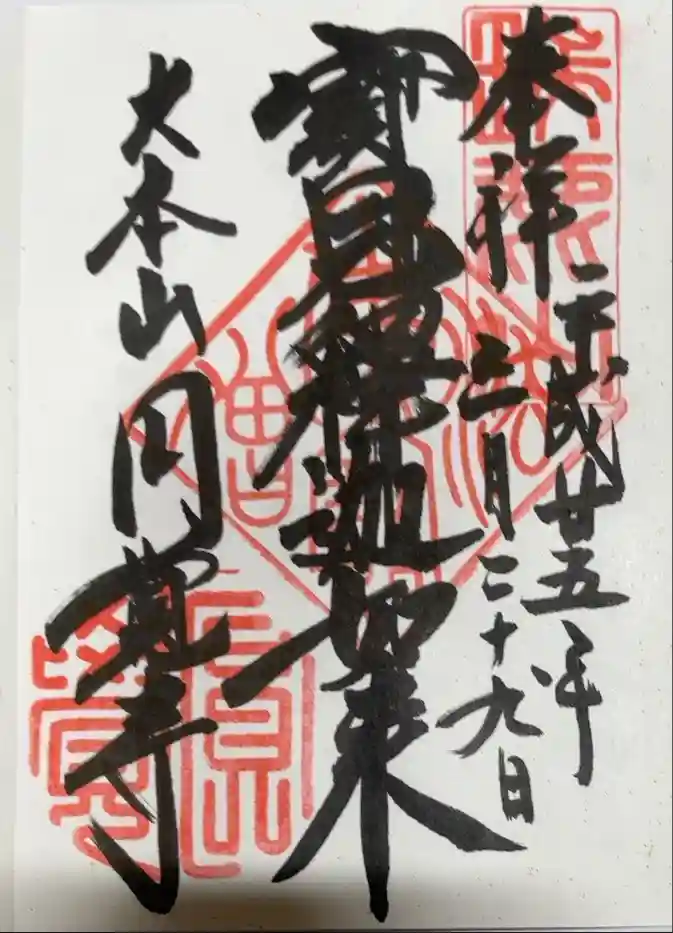 奉拝
平成廿五年
三月二十九日
寳冠釋迦如来
大本山
円覚寺